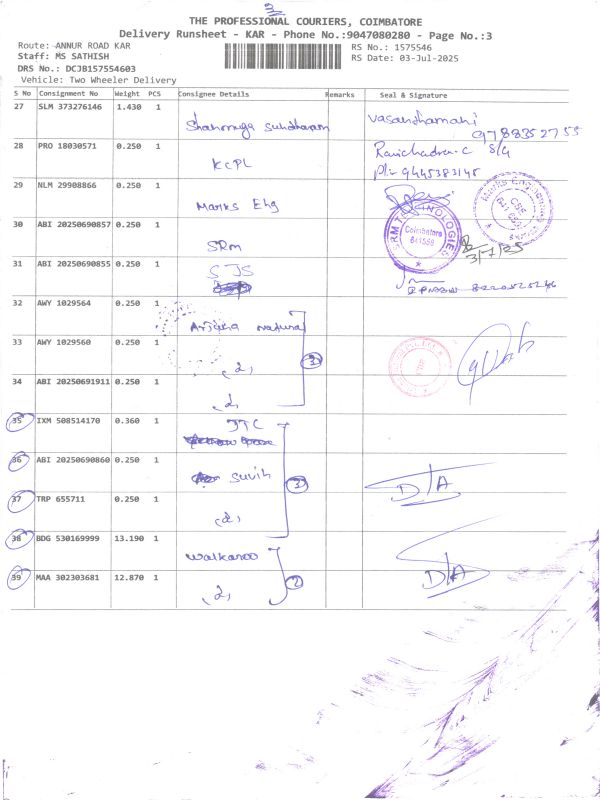 3
THE PROFESSIONAL COURIERS, COIMBATORE
Delivery Runsheet - KAR - Phone No.:9047080280 - Page No.:3
Route: ANNUR ROAD KAR
RS No.: 1575546
Staff: MS SATHISH
RS Date: 03-Jul-2025
DRS No.: DCJB157554603
Vehicle: Two Wheeler Delivery
S No Consignment No Weight PCS Consignee Details Remarks Seal & Signature
27 SLM 373276146 1.430 1 Shanmuga Sundharam Vasandhamani
9788352755
28 PRO 18030571 0.250 1 KCPL Ravichadra-C S/G
Ph:- 9445383145
29 NLM 29908866 0.250 1 Marks Eng
30 ABI 20250690857 0.250 1 SRm
SRM TECHNOLOGIES
Coimbatore
641598
3/7/25
31 ABI 20250690855 0.250 1 SJS
8220525246
32 AWY 1029564 0.250 1 natural
33 AWY 1029560 0.250 1 (d)
3
34 ABI 20250691911 0.250 1 (d)
35 IXM 508514170 0.360 1 JTC
36 ABI 20250690860 0.250 1 Suvih
3
D/A
37 TRP 655711 0.250 1 (d)
38 BDG 530169999 13.190 1 Walkaroo
39 MAA 302303681 12.870 1 (d)
2
D/A